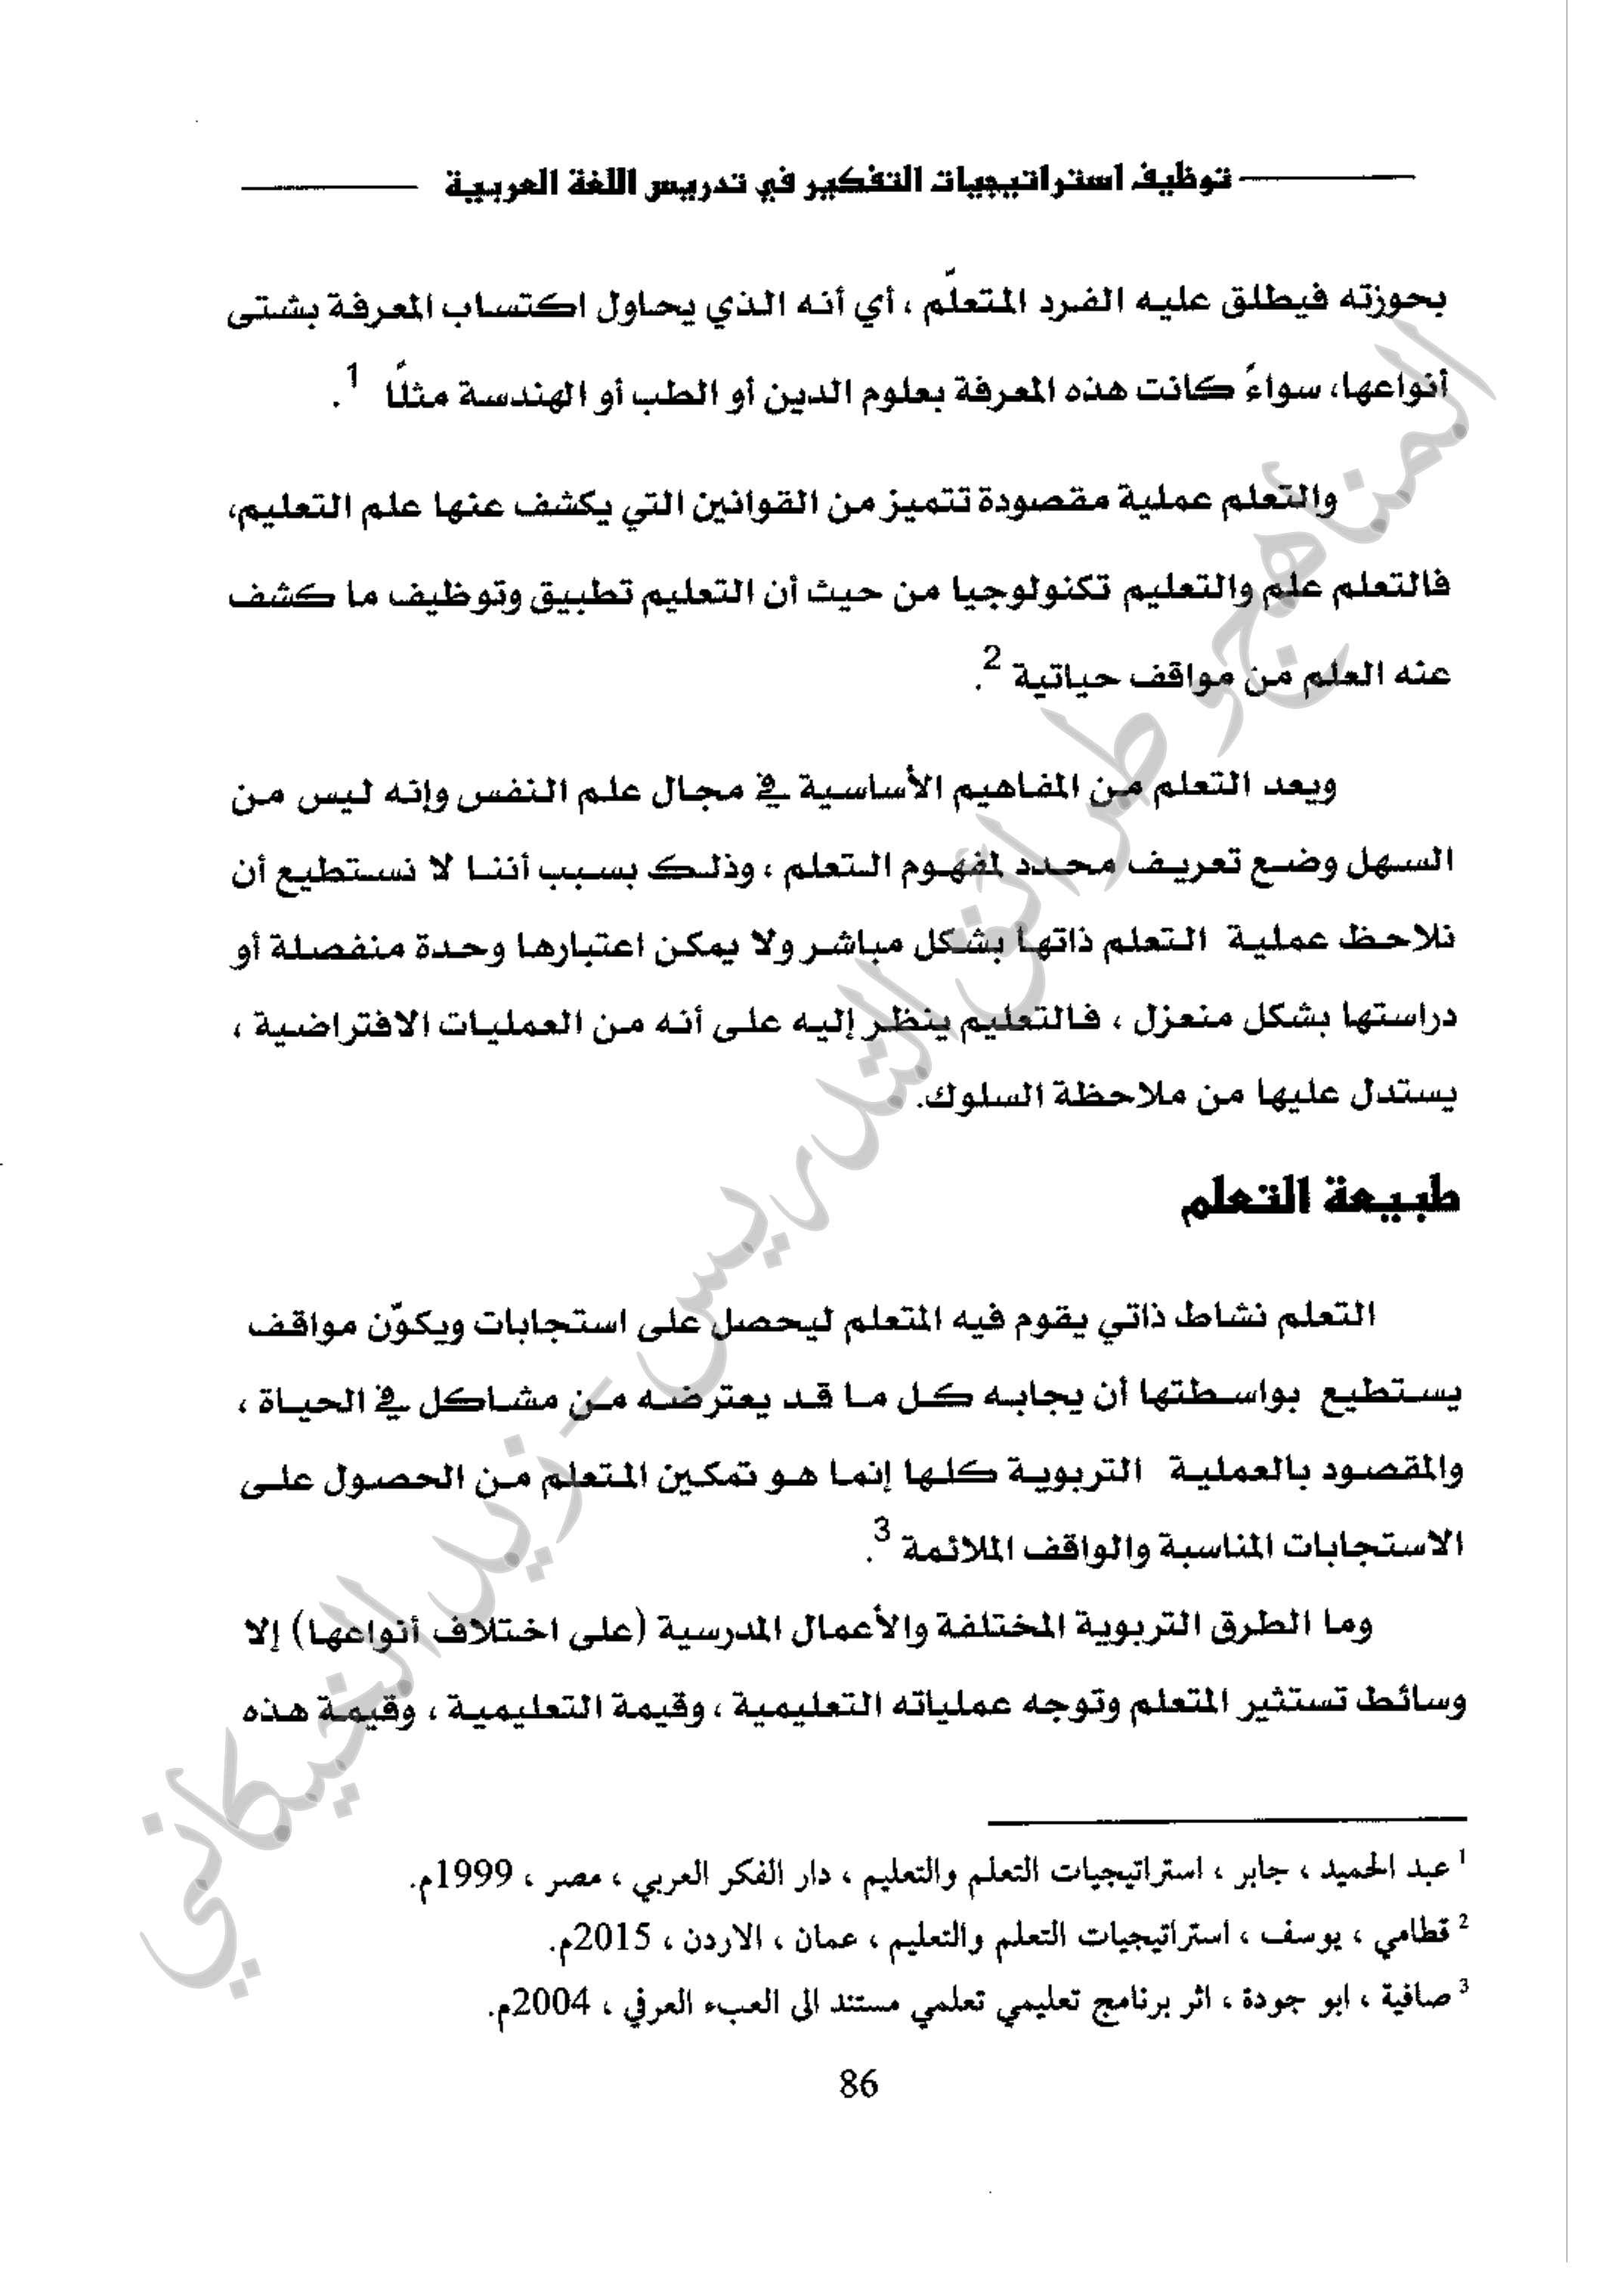 توظيف استراتيجيات التفكير في تدريس اللغة العربية
بحوزته فيطلق عليه الفرد المتعلّم ، أي أنه الذي يحاول اكتساب المعرفة بشتى
أنواعها، سواءً كانت هذه المعرفة بعلوم الدين أو الطب أو الهندسة مثلًا 1.
والتعلم عملية مقصودة تتميز من القوانين التي يكشف عنها علم التعليم،
فالتعلم علم والتعليم تكنولوجيا من حيث أن التعليم تطبيق وتوظيف ما كشف
عنه العلم من مواقف حياتية 2.
ويعد التعلم من المفاهيم الأساسية في مجال علم النفس وإنه ليس من
السهل وضع تعريف محدد لمفهوم التعلم ، وذلك بسبب أننا لا نستطيع أن
نلاحظ عملية التعلم ذاتها بشكل مباشر ولا يمكن اعتبارها وحدة منفصلة أو
دراستها بشكل منعزل ، فالتعليم ينظر إليه على أنه من العمليات الافتراضية ،
يستدل عليها من ملاحظة السلوك.
طبيعة التعلم
التعلم نشاط ذاتي يقوم فيه المتعلم ليحصل على استجابات ويكوّن مواقف
يستطيع بواسطتها أن يجابه كل ما قد يعترضه من مشاكل في الحياة ،
والمقصود بالعملية التربوية كلها إنما هو تمكين المتعلم من الحصول على
الاستجابات المناسبة والواقف الملائمة 3.
وما الطرق التربوية المختلفة والأعمال المدرسية (على اختلاف أنواعها) إلا
وسائط تستثير المتعلم وتوجه عملياته التعليمية ، وقيمة التعليمية ، وقيمة هذه
1 عبد الحميد ، جابر ، استراتيجيات التعلم والتعليم ، دار الفكر العربي ، مصر ، 1999م.
2 قطامي ، يوسف ، استراتيجيات التعلم والتعليم ، عمان ، الاردن ، 2015م.
3 صافية ، ابو جودة ، اثر برنامج تعليمي تعلمي مستند الى العبء العرفي ، 2004م.
86
المناهج وطرائق التدريس - زيد الخيكاني